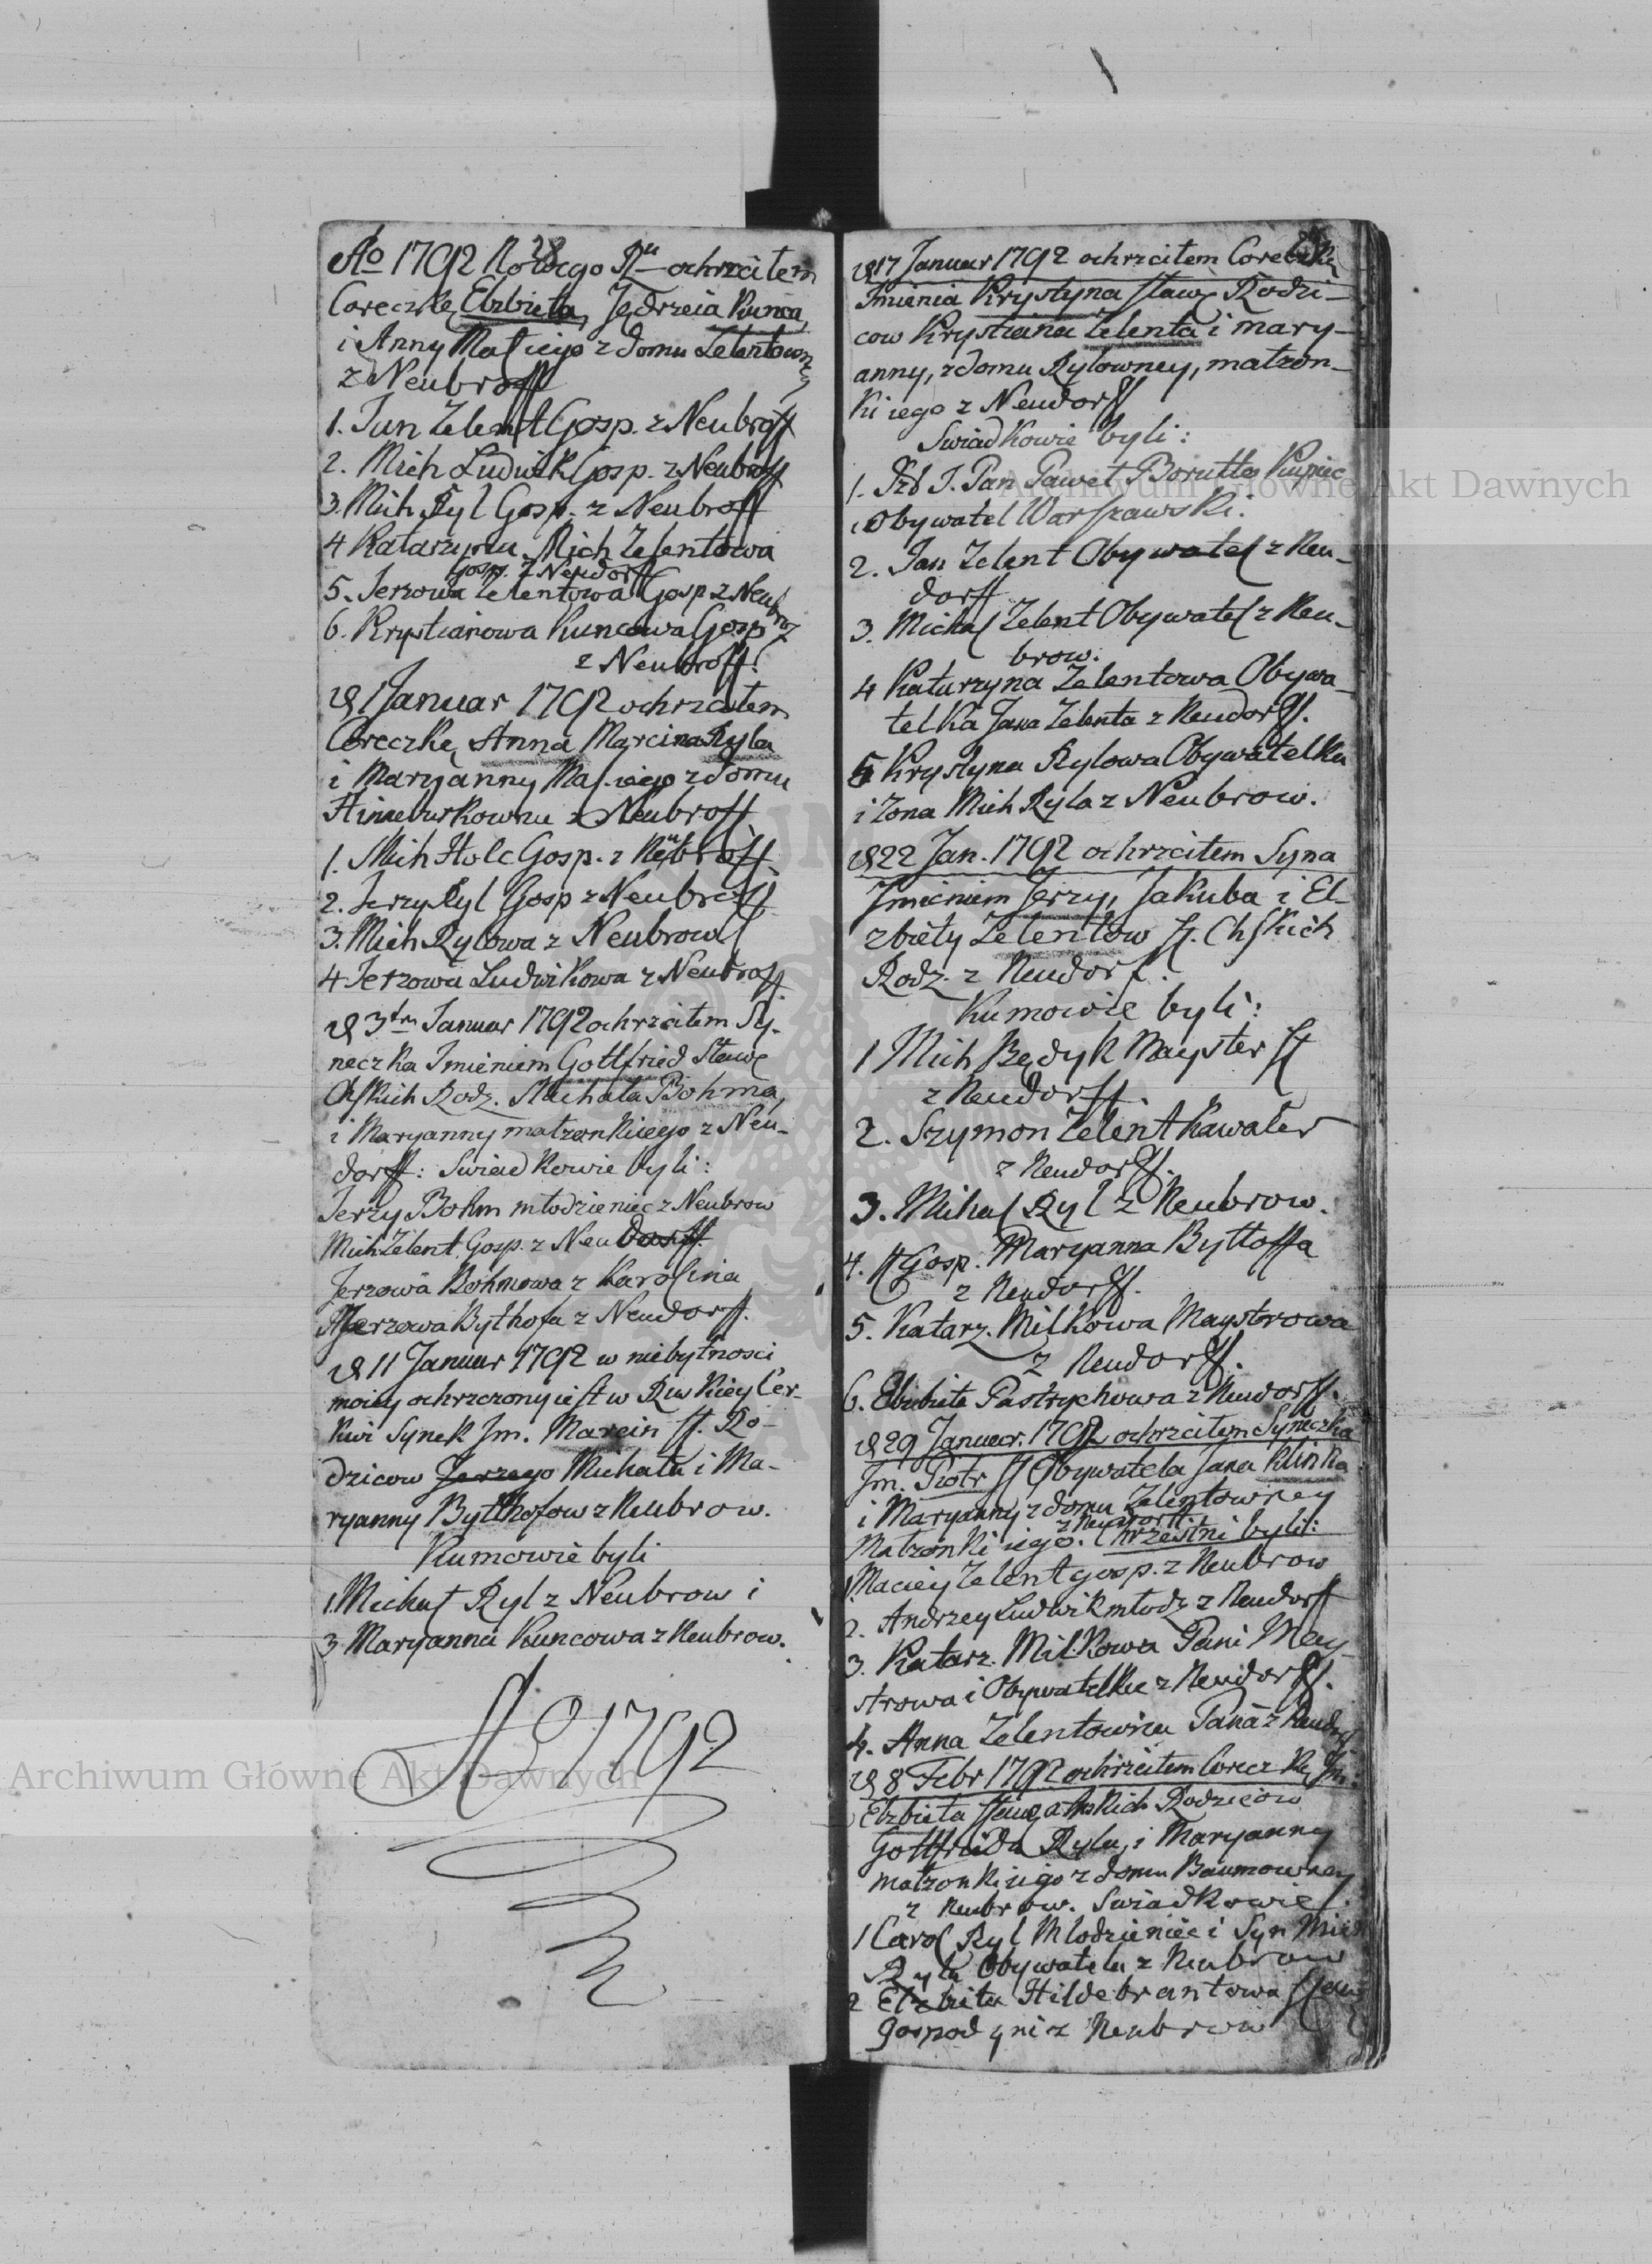 Ao 1792 Nowego Ru ochrzcitem
Coreczkę Elzbieta, Jędrzeia Kunca,
i Anny Mał. iego z domu Zelentowny
z Neubroff
1. Jan Zelent Gosp. z Neubroff
2. Mich Ludwik Gosp. z Neubroff
3. Mich Ryl Gosp. z Neubroff
4 Katarzyna Mich Zelentowa
Gosp. z Neudorff
5. Jerzowa Zelentowa Gosp z Neubroff
6. Krystianowa Kuncowa Gosp
z Neubroff.
d 1 Januar 1792 ochrzcitem
Coreczkę Anna Marcina Ryla
i Maryanny Mał. iego z domu
z Neubroff
1. Mich Holc Gosp. z Neubroff
2. Jerzy Ryl Gosp z Neubroff
3. Mich Rylowa z Neubrow
4 Jerzowa Ludwikowa z Neubroff
d 3tn Januar 1792 ochrzcitem Sy-
neczka Imieniem Gottfried Sławę
Chskich Rodz. Michała Bohma,
i Maryanny małzonki iego z Neu-
dorff: Swiadkowie byli:
Jerzy Bohm młodzieniec z Neubrow
Mich Zelent Gosp. z Neudorff.
Jerzowa Bohmowa z Karolina
Jerzowa Bythofa z Neudorff.
d 11 Januar 1792 w niebytnosci
moiey ochrzczony iest w Ruskiey Cer-
kwi Synek Im. Marcin Sł. Ro-
dzicow Jerzego Michała i Ma-
ryanny Bytthofow z Neubrow.
Kumowie byli
1. Michał Ryl z Neubrow i
3 Maryanna Kuncowa z Neubrow.
A 1792
d 17 Januar 1792 ochrzcitem Coreczkę
Imienia Krystyna sławę Rodzi-
cow Krystiana Zelenta i mary-
anny, z domu Rylowney, małzon-
ki iego z Neudorff
Swiadkowie byli:
1. J. Pan Paweł Borutta Kupiec
i Obywatel Warszawski.
2. Jan Zelent Obywatel z Neu-
dorff
3. Michał Zelent Obywatel z Neu-
brow.
4 Katarzyna Zelentowa Obywa-
telka Jana Zelenta z Neudorff.
5 Krystyna Rylowa Obywatelka
i zona Mich Ryla z Neubrow.
d 22 Jan. 1792 ochrzcitem Syna
Imieniem Jerzy, Jakuba i El-
zbiety Zelentow Sł. Chskich
Rodz. z Neudorf.
Kumowie byli:
1 Mich Będyk Mayster Sł
z Neudorff.
2. Szymon Zelent Kawaler
z Neudorff.
3. Michał Ryl z Neubrow.
4. Gosp. Maryanna Byttoffa
z Neudorff.
5. Katarz. Milkowa Maystrowa
z Neudorff.
6. Elzbieta Pastrychowa z Neudorff.
d 29 Januar. 1792 ochrzcitem Syneczka
Im. Piotr Sł Obywatela Jana Klinka
i Maryanny z domu Zelentowney
z Neudorff.
Małzonki iego. Chrzestni byli:
Maciey Zelent gosp. z Neubrow
2. Andrzey Ludwik młodz z Neudorff
3. Katarz. Milkowa Pani May-
strowa i Obywatelka z Neudorff.
4. Anna Zelentowna Pana z Neudorff
d 8 Febr 1792 ochrzcitem Coreczkę Im.
Elzbieta sławę chskich Rodzicow
Gottfrieda Ryla, i Maryanny
małzonki iego z domu Baumowney
z Neubrow. Swiadkowie
1 Carol Ryl Młodzieniec i Syn Mich
Ryla Obywatela z Neubrow
2 Elzbieta Hildebrantowa sławę
gospodyni z Neubrow
Archiwum Główne Akt Dawnych
Archiwum Główne Akt Dawnych